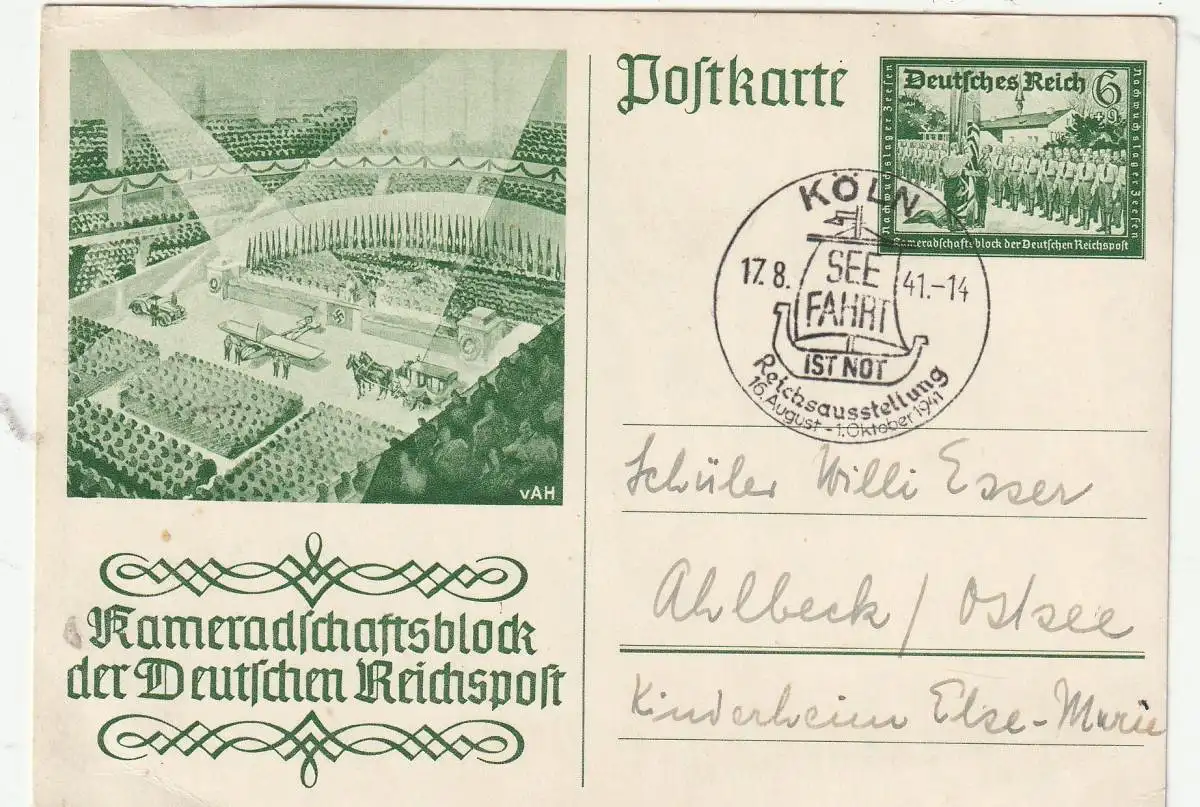 vAH
Kameradſchaftsblock
der Deutſchen Reichspoſt
Poſtkarte
Deutſches Reich 6
+9
Nachwuchslager Zeeſen
Nachwuchslager Zeeſen
Kameradſchaftsblock der Deutſchen Reichspoſt
KÖLN
17.8. 41.-14
SEE
FAHRT
IST NOT
Reichsausstellung
16. August - 1. Oktober 1941
Schüler Willi Esser
Ahlbeck / Ostsee
Kinderheim Else-Marie